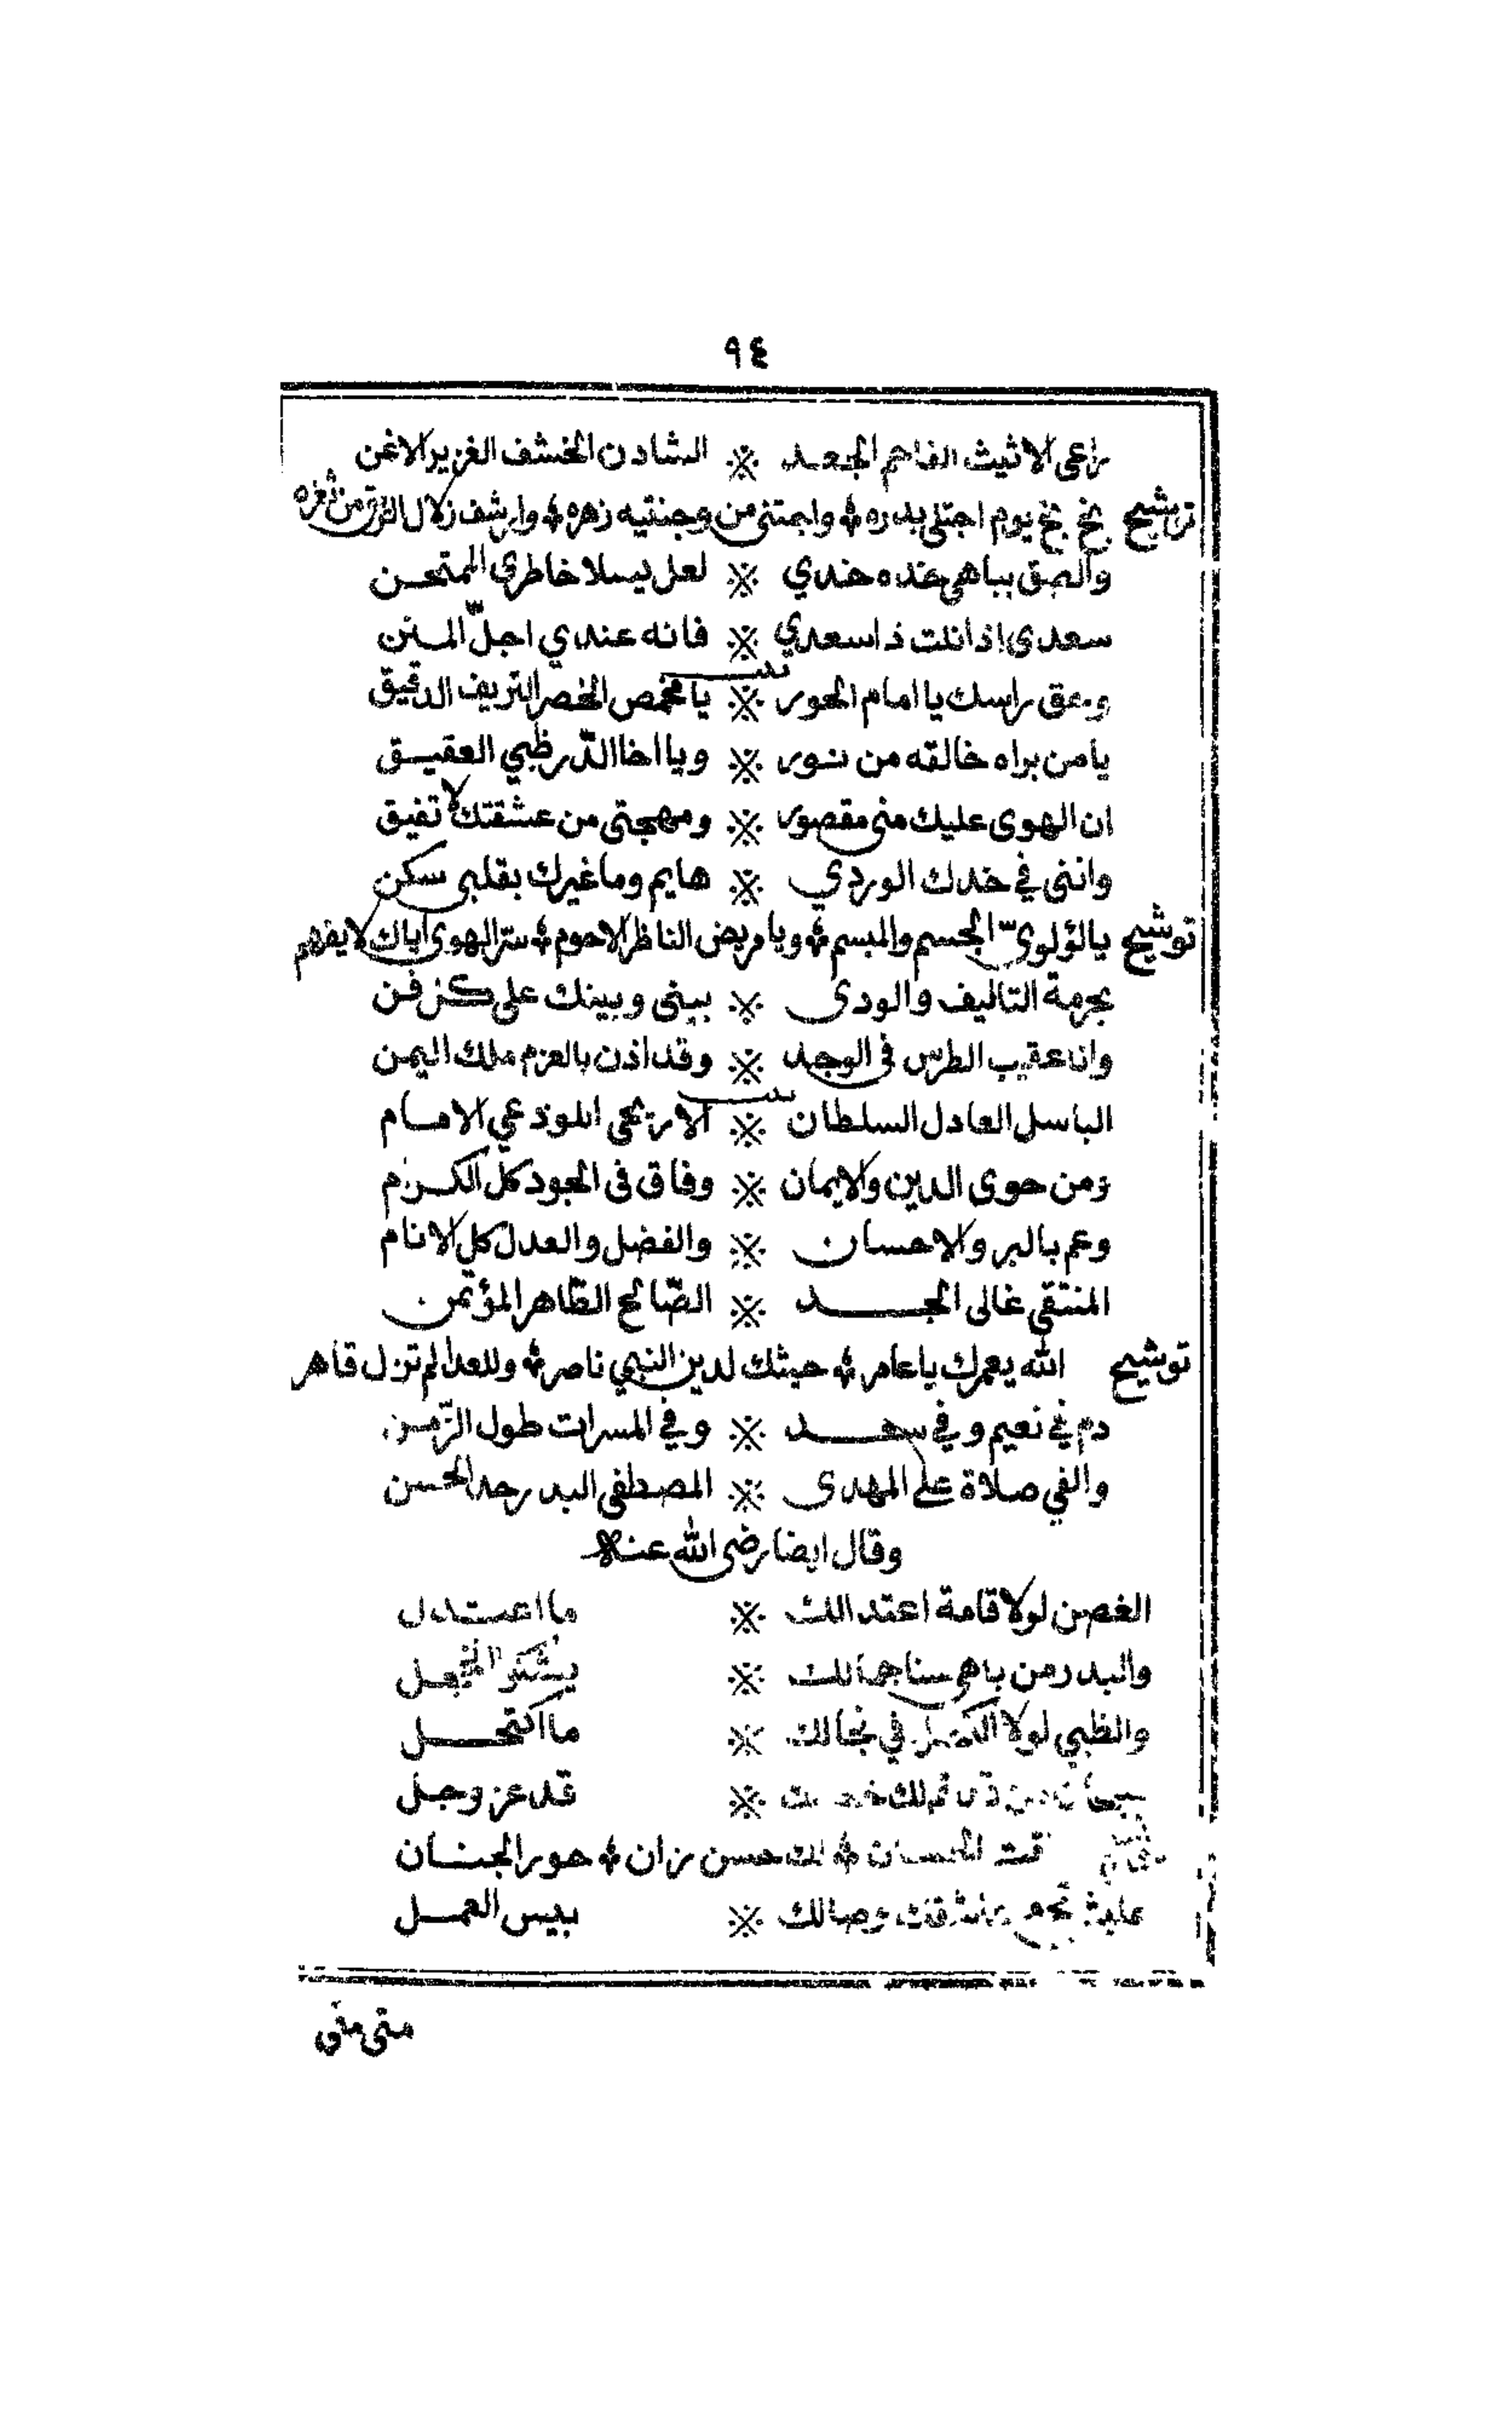 ٩٤
راعى الاثيث الفاحم الجعد ※ الشادن الخشف الغرير الاغن
توشيح بخ بخ يوم اجتلى بدره ۞ واجتنى من وجنتيه زهره ۞ وارشف زلال الريق من ثغره
والصق بباهى خده خدي ※ لعل يسلا خاطري الممتحن
سعدى اذا نلت ذا سعدي ※ فانه عندي اجلّ المنن
وحق راسك يا امام الحور ※ يا مخمص الخصر التريف الدقيق
يا من براه خالقه من نور ※ ويا اخا الدّر ظبي العقيق
ان الهوى عليك منى مقصور ※ ومهجتى من عشقتك لا تفيق
واننى في خدك الوردي ※ هايم وما غيرك بقلبى سكن
توشيح يا لؤلوىّ الجسم والمبسم ۞ ويا مريض الناظر الاحوم ۞ ستر الهوى اياك لا يفهم
بحرمة التاليف والودى ※ بينى وبينك على كل فن
وانا عقيب الطرس فى الوجد ※ وقد اذن بالعزم ملك اليمن
الباسل العادل السلطان ※ الاريحى اللوذعي الامام
ومن حوى الدين والايمان ※ وفاق فى الجود كل الكرام
وعم بالبر والاحسان ※ والفضل والعدل كل الانام
المنتقى غالى الجد ※ الصّالح الطّاهر المؤتمن
توشيح الله يعمرك يا عامر ۞ حيثك لدين النبي ناصر ۞ وللعدا لم تزل قاهر
دم في نعيم وفي سعد ※ وفي المسرات طول الزّمن
والفي صلاة على المهدى ※ المصطفى البدر جد الحسن
وقال ايضا رضى الله عنه
الغصن لولا قامة اعتدالك ※ ما اعتدل
والبدر من باهى سنا جمالك ※ الخجل
والظبي لولا الكحل في نجالك ※ ما اكتحل
※ قد عز وجل
الحسان ۞ لك حسن زان ۞ حور الجنان
وصالك ※ بيس العمل
متى متى